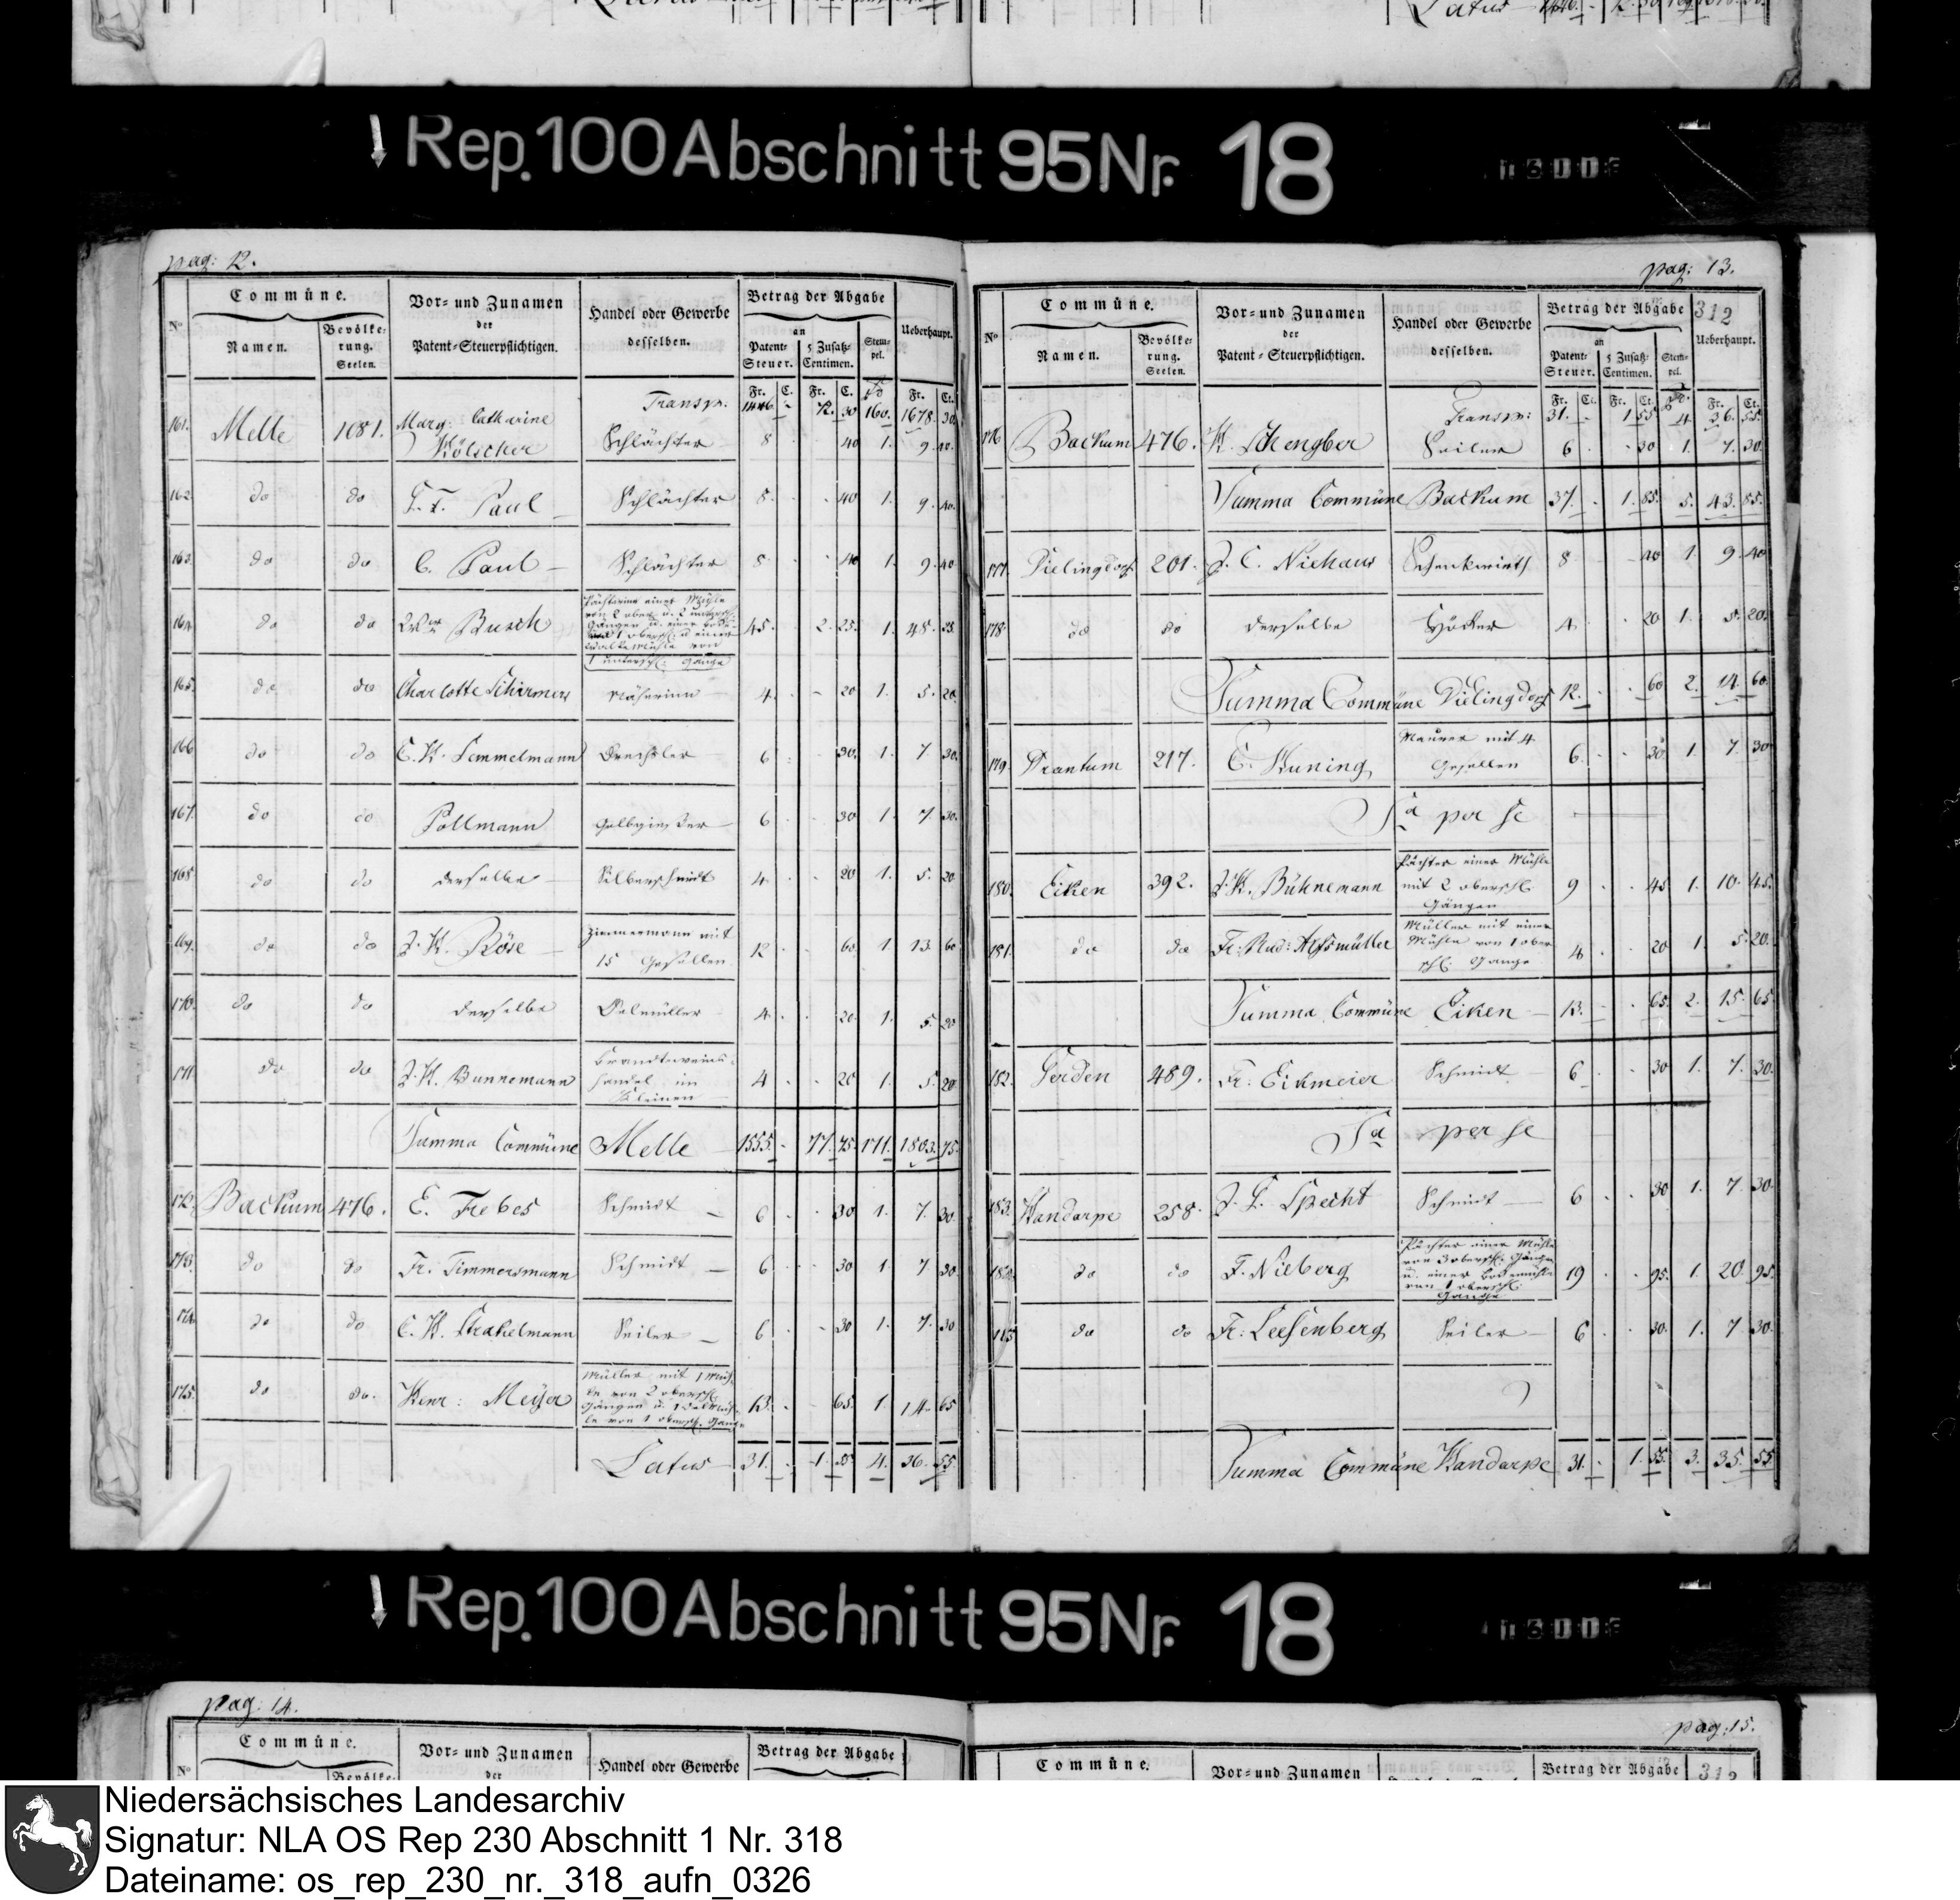 Latus 1446. - 72. 30 160. 1678. 30.
Rep. 100 Abschnitt 95 Nr. 18
pag: 12.
No
Commüne.
Namen.
Bevölke-
rung.
Seelen.
Vor- und Zunamen
der
Patent-Steuerpflichtigen.
Handel oder Gewerbe
desselben.
Betrag der Abgabe
an
Patent-
Steuer.
5 Zusatz-
Centimen.
Stem-
pel.
Ueberhaupt.
Fr. C. Fr. C. Fr. Fr. Ct.
Transp: 1446. - 72. 30 160. 1678. 30.
161. Melle 1081. Marg: Catharine
Kölscher Schlächter 8 40 1. 9. 40.
162. do do F. F. Paul Schlächter 8. 40 1. 9. 40.
163. do do C. Paul Schlächter 8 40 1. 9. 40
164. do do Wwe Busch Pächterin einer Mühle
von 2 ober u. 2 untersch.
Gängen u. einer Boke-
von 1 obersch: u einer
Walkemühle von
1 untersch: Gange 45. 2. 25. 1. 48. 25.
165. do do Charlotte Schirmer Näherinn 4. 20 1. 5. 20.
166 do do C. H. Semmelmann Drechsler 6 30. 1. 7. 30.
167. do do Pollmann Gelbgießer 6 30 1. 7. 30.
168. do do derselbe Silberschmidt 4. 20 1. 5. 20
169. do do J. H. Böse Zimmermann mit
15 Gesellen 12 60. 1 13. 60
170. do do derselbe Oelmüller 4. 20. 1. 5. 20
171 do do J. H. Bunnemann Brandtweins-
handel im
Kleinen 4 20 1. 5. 20
Summa Commüne Melle 1555. - 77. 75. 171. 1803. 75.
172. Backum 476. E. Frebes Schmidt 6 30 1. 7. 30.
173. do do Fr. Timmersmann Schmidt 6 30 1. 7 30.
174. do do C. H. Strakelmann Seiler 6 30 1. 7. 30
175. do do. Henr: Meÿer Müller mit 1 Müh-
le von 2 obersch.
Gängen u. 1 Oelmüh-
le von 1 obersch. Gange 13. 65. 1. 14. 65
Latus 31. - 1. 55 4. 36. 55.
pag: 13.
312
No
Commüne.
Namen.
Bevölke-
rung.
Seelen.
Vor- und Zunamen
der
Patent-Steuerpflichtigen.
Handel oder Gewerbe
desselben.
Betrag der Abgabe
an
Patent-
Steuer.
5 Zusatz-
Centimen.
Stem-
pel.
Ueberhaupt.
Fr. Ct. Fr. Ct. Fr. Fr. Ct.
Transp: 31. 1 55 4 36. 55.
176 Backum 476. H. Schengber Seiler 6 30 1. 7. 30.
Summa Commüne Backum 37. - 1. 85. 5. 43. 85.
177. Dielingdorf 201. J. C. Niehaus Schenkwirth 8 40 1. 9. 40
178. do do derselbe Höcker 4. 20 1. 5. 20.
Summa Commüne Dielingdorf 12. - 60 2. 14. 60.
179. Drantum 217. C. Huning Maurer mit 4
Gesellen 6. 30 1. 7. 30
Sa per se
180. Eiken 392. J. H. Bühnemann Pächter einer Mühle
mit 2 obersch.
Gängen 9 45 1. 10. 45.
181. do do Fr: Rud: Alfsmüller Müller mit einer
Mühle von 1 ober
sch: Gange 4 20 1. 5. 20.
Summa Commüne Eiken 13. - 65. 2. 15. 65.
182. Gerden 489. Fr: Eikmeier Schmidt 6 30 1. 7. 30.
Sa per se
183. Handarpe 258. J. F. Specht Schmidt 6 30 1. 7. 30.
184. do do F. Nieberg Pächter einer Mühle
von 3 obersch. Gängen
u. einer Bokemühle
von 1 obersch:
Gange 19 95. 1. 20 95.
185 do do Fr: Leesenberg Seiler 6 30. 1. 7 30.
Summa Commüne Handarpe 31. - 1. 55. 3. 35. 55
Rep. 100 Abschnitt 95 Nr. 18
pag: 14.
No
Commüne.
Bevölke-
Vor- und Zunamen
der
Handel oder Gewerbe
Betrag der Abgabe
pag: 15.
Commüne.
Vor- und Zunamen
Betrag der Abgabe
313
Niedersächsisches Landesarchiv
Signatur: NLA OS Rep 230 Abschnitt 1 Nr. 318
Dateiname: os_rep_230_nr._318_aufn_0326